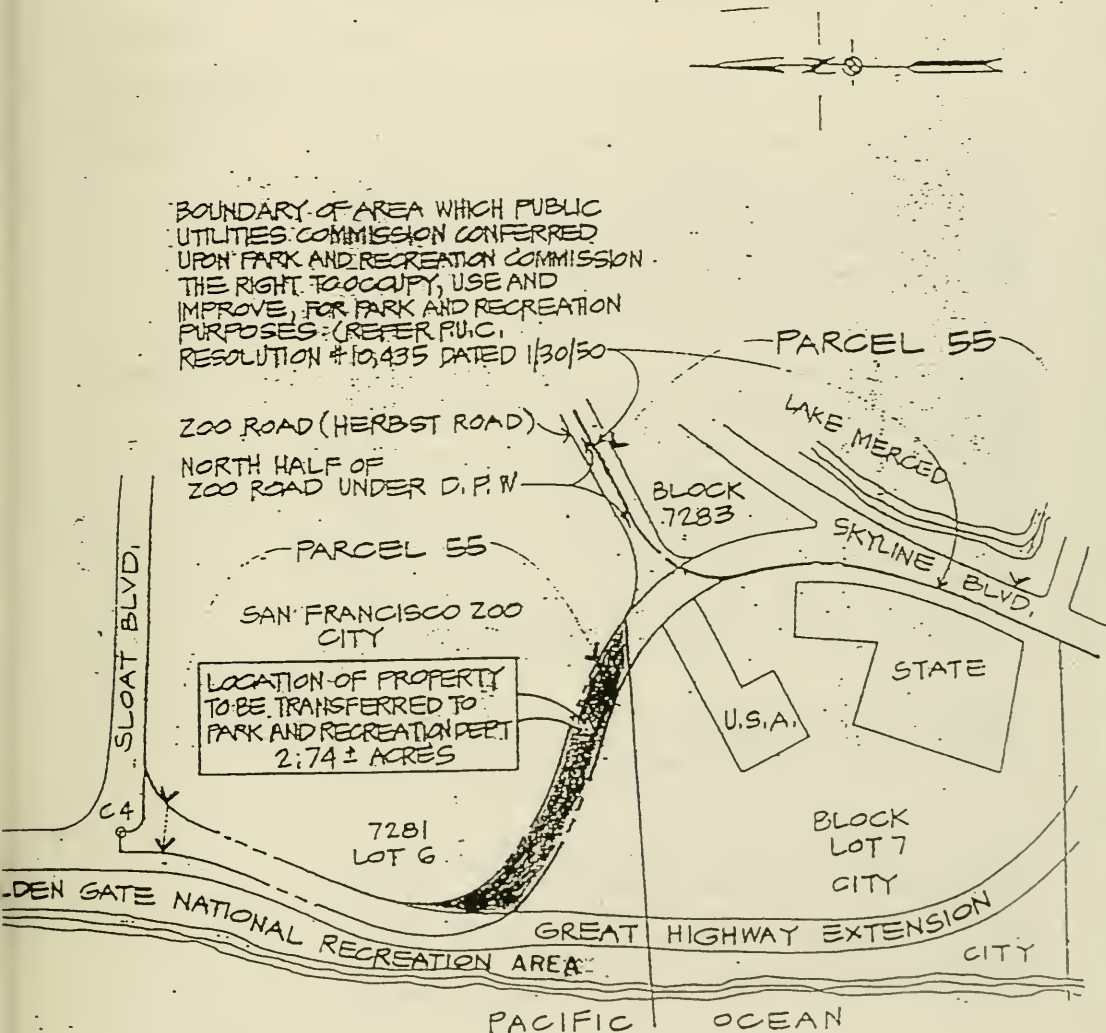 N
BOUNDARY OF AREA WHICH PUBLIC
UTILITIES COMMISSION CONFERRED
UPON PARK AND RECREATION COMMISSION
THE RIGHT TO OCCUPY, USE AND
IMPROVE, FOR PARK AND RECREATION
PURPOSES (REFER P.U.C.
RESOLUTION #10,435 DATED 1/30/50
PARCEL 55
ZOO ROAD (HERBST ROAD)
NORTH HALF OF
ZOO ROAD UNDER D.P.W
LAKE MERCED
BLOCK
7283
SKYLINE BLVD.
PARCEL 55
SLOAT BLVD.
SAN FRANCISCO ZOO
CITY
LOCATION OF PROPERTY
TO BE TRANSFERRED TO
PARK AND RECREATION DEPT
2.74 ± ACRES
U.S.A.
STATE
C4
7281
LOT 6
BLOCK
LOT 7
CITY
LDEN GATE NATIONAL RECREATION AREA
GREAT HIGHWAY EXTENSION
CITY
PACIFIC OCEAN